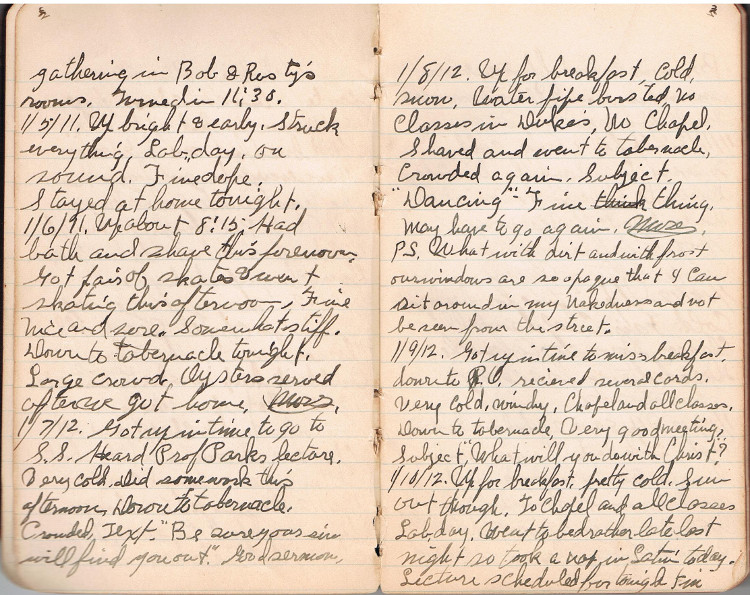 gathering in Bob & Rusty's
rooms. Turned in 11:30.
1/5/11. Up bright & early. Struck
everything, Lab. day. on
sound. Fine dope.
Stayed at home tonight.
1/6/11. Up about 8:15 Had
bath and shave this forenoon.
Got pair of skates & went
skating this afternoon, Fine
nice and sore. Somewhat stiff.
Down to tabernacle tonight.
Large crowd, Oysters served
after we got home.
1/7/12. Got up in time to go to
S.S. Heard Prof Parks lecture.
Very cold. Did some work this
afternoon. Down to tabernacle.
Crowded, Text. "Be sure your sins
will find you out." Good sermon.
1/8/12. Up for breakfast, Cold,
snow, Water pipe bursted, no
Classes in Dukes, No Chapel.
Shaved and went to tabernacle,
Crowded again. Subject.
"Dancing" - Fine think thing.
May have to go again.
P.S. What with dirt and with frost
our windows are so opaque that I can
sit around in my nakedness and not
be seen from the street.
1/9/12. Got up in time to miss breakfast.
down to P.O. recieved several cards.
Very cold, windy, Chapel and all classes.
Down to tabernacle, Very good meeting,
Subject, "What will you do with Christ"?
1/10/12. Up for breakfast, pretty cold. Sun
out though. To Chapel and all classes
Lab. day. Went to bed rather late last
night so took a nap in Latin today.
Lecture scheduled for tonight